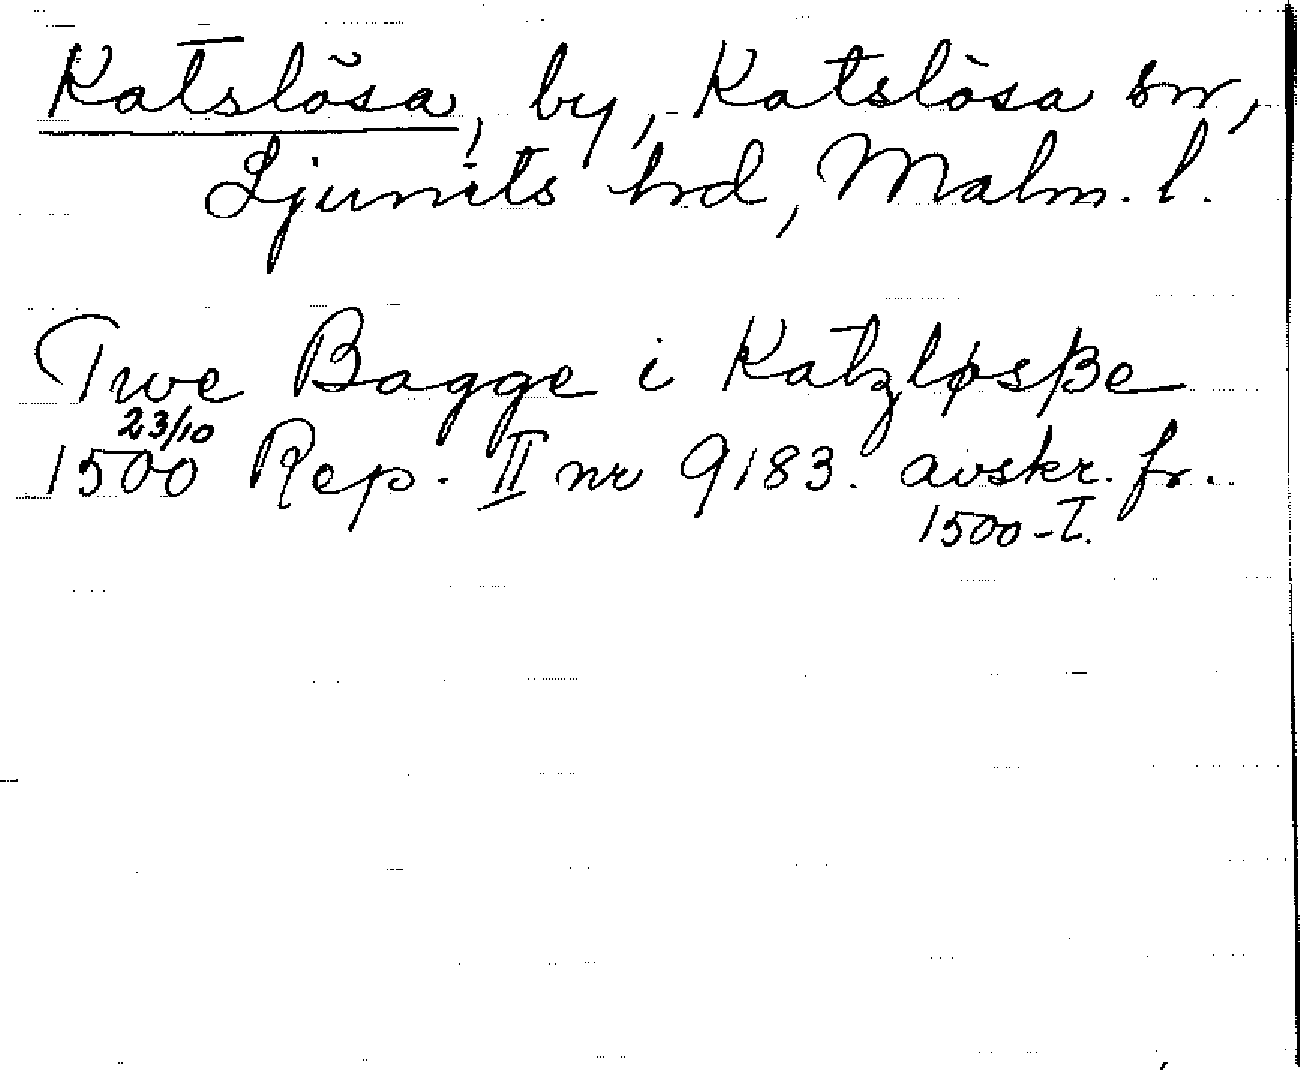 Katslösa, by, Katslösa sn,
Ljunits hd, Malm. l.
Twe Bagge i Katzløsße
23/10
1500 Rep. II nr 9183. avskr. fr.
1500-T.